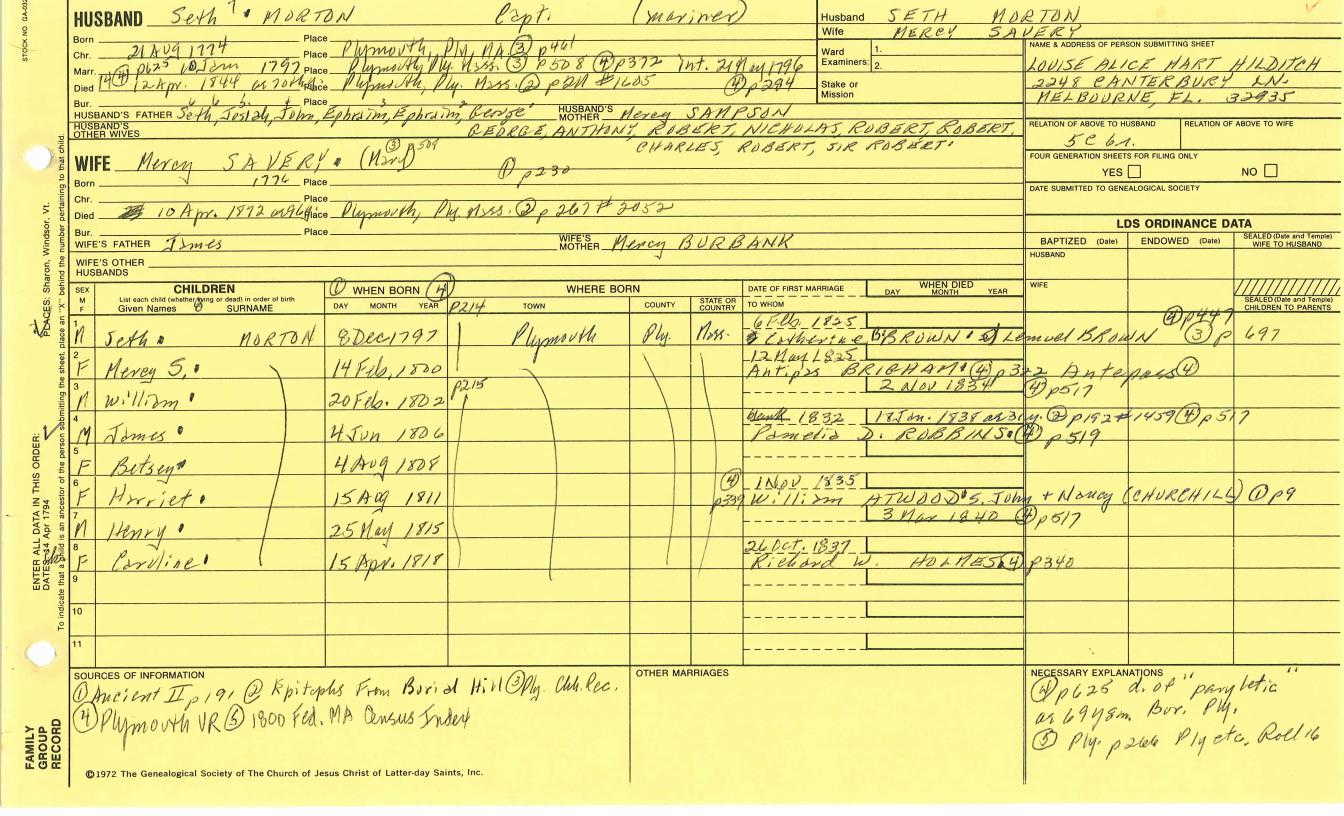 STOCK NO. GA-032
HUSBAND Seth 7. MORTON Capt. (mariner)
Born Place
Chr. 21 AUG 1774 Place Plymouth, Ply, MA ③ p461
Marr. ④ p625 10 Jan 1797 Place Plymouth, Ply. Mass. ③ p508 ④ p372 int. 21 May 1796
Died 12 Apr. 1844 Place Plymouth, Ply. Mass. ② p211 #1605 ④ p294
Bur. Place
HUSBAND'S FATHER Seth, Josiah, John, Ephraim, Ephraim, George HUSBAND'S MOTHER Mercy SAMPSON
HUSBAND'S OTHER WIVES GEORGE, ANTHONY, ROBERT, NICHOLAS, ROBERT, ROBERT,
CHARLES, ROBERT, SIR ROBERT.
WIFE Mercy SAVERY. (Mary) ③ 509 ① p230
Born 1776 Place
Chr. Place
Died 10 Apr. 1872 Place Plymouth, Ply Mass. ② p267 # 2052
Bur. Place
WIFE'S FATHER James WIFE'S MOTHER Mercy BURBANK
WIFE'S OTHER HUSBANDS
Husband SETH MORTON
Wife MERCY SAVERY
Ward Examiners: 1.
2.
Stake or Mission
NAME & ADDRESS OF PERSON SUBMITTING SHEET
LOUISE ALICE HART HILDITCH
2248 CANTERBURY LN.
MELBOURNE, FL. 32935
RELATION OF ABOVE TO HUSBAND RELATION OF ABOVE TO WIFE
5C 6r.
FOUR GENERATION SHEETS FOR FILING ONLY
YES NO
DATE SUBMITTED TO GENEALOGICAL SOCIETY
LDS ORDINANCE DATA
BAPTIZED (Date) ENDOWED (Date) SEALED (Date and Temple) WIFE TO HUSBAND
HUSBAND
WIFE
SEALED (Date and Temple) CHILDREN TO PARENTS
SEX M F CHILDREN ① WHEN BORN ④ WHERE BORN DATE OF FIRST MARRIAGE WHEN DIED
List each child (whether living or dead) in order of birth DAY MONTH YEAR
Given Names SURNAME DAY MONTH YEAR P214 TOWN COUNTY STATE OR COUNTRY TO WHOM
1 6 Feb. 1825 ④ p447
M Seth. MORTON 8 Dec 1797 Plymouth Ply. Mass. Catherine BROWN Lemuel BROWN ③ p 697
2 12 May 1825
F Mercy S. 14 Feb, 1800 Antipas BRIGHAM ④ p322 Antepass ④
3 p215 2 Nov 1834 ④ p517
M William 20 Feb. 1802
4 1832 18 Jan. 1838 ② p192 # 1459 ④ p517
M James 4 Jun 1806 Pamelia D. ROBBINS. ④ p519
5
F Betsey 4 Aug 1808
6 ④ 1 Nov 1835
F Harriet. 15 Aug 1811 p339 William ATWOOD S. John + Nancy (CHURCHILL) ① p9
7 3 Mar 1840 ④ p517
M Henry 25 May 1815
8 26 Oct. 1837
F Caroline 15 Apr. 1818 Richard W. HOLMES ④ p340
9
10
11
SOURCES OF INFORMATION
① Ancient II p 191 ② Epitaphs From Burial Hill ③ Ply. Chh. Rec.
④ Plymouth VR ⑤ 1800 Fed. MA Census Index
OTHER MARRIAGES
NECESSARY EXPLANATIONS
④ p625 d. of "paryletic"
ae 69y8m. Bur. Ply.
⑤ Ply. p266 Ply etc. Roll 16
©1972 The Genealogical Society of The Church of Jesus Christ of Latter-day Saints, Inc.
FAMILY GROUP RECORD
ENTER ALL DATA IN THIS ORDER:
DATES: 14 Apr 1794
PLACES: Sharon, Windsor, Vt.
To indicate that a child is an ancestor of the person submitting the sheet, place an "X" behind the number pertaining to that child.